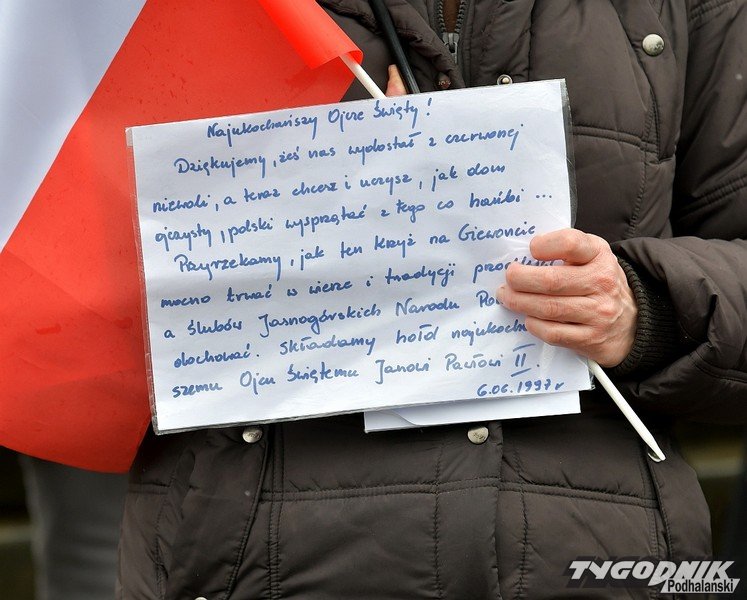 Najukochańszy Ojcze Święty!
Dziękujemy, żeś nas wydostał z czerwonej
niewoli, a teraz chcesz i uczysz, jak dom
ojczysty, polski wysprzątać z tego co hańbi ...
Przyrzekamy, jak ten krzyż na Giewoncie
mocno trwać w wierze i tradycji
a ślubów Jasnogórskich Narodu
dochować. Składamy hołd
szemu Ojcu Świętemu Janowi Pawłowi II.
6.06.1997 r
TYGODNIK
Podhalański